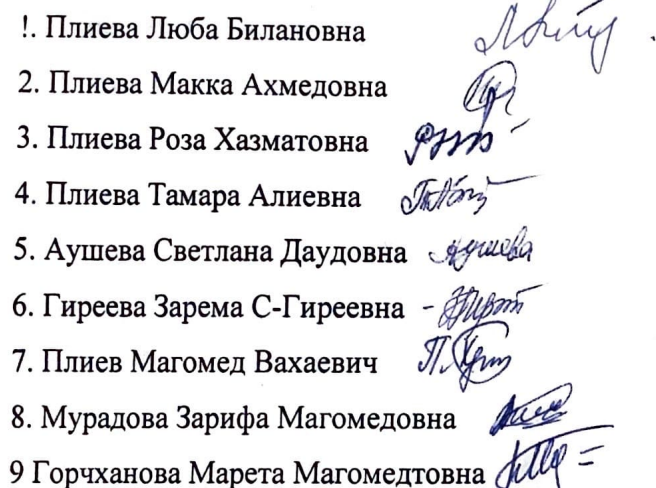 !. Плиева Люба Билановна
2. Плиева Макка Ахмедовна
3. Плиева Роза Хазматовна
4. Плиева Тамара Алиевна
5. Аушева Светлана Даудовна аушева
6. Гиреева Зарема С-Гиреевна -
7. Плиев Магомед Вахаевич
8. Мурадова Зарифа Магомедовна
9 Горчханова Марета Магомедтовна